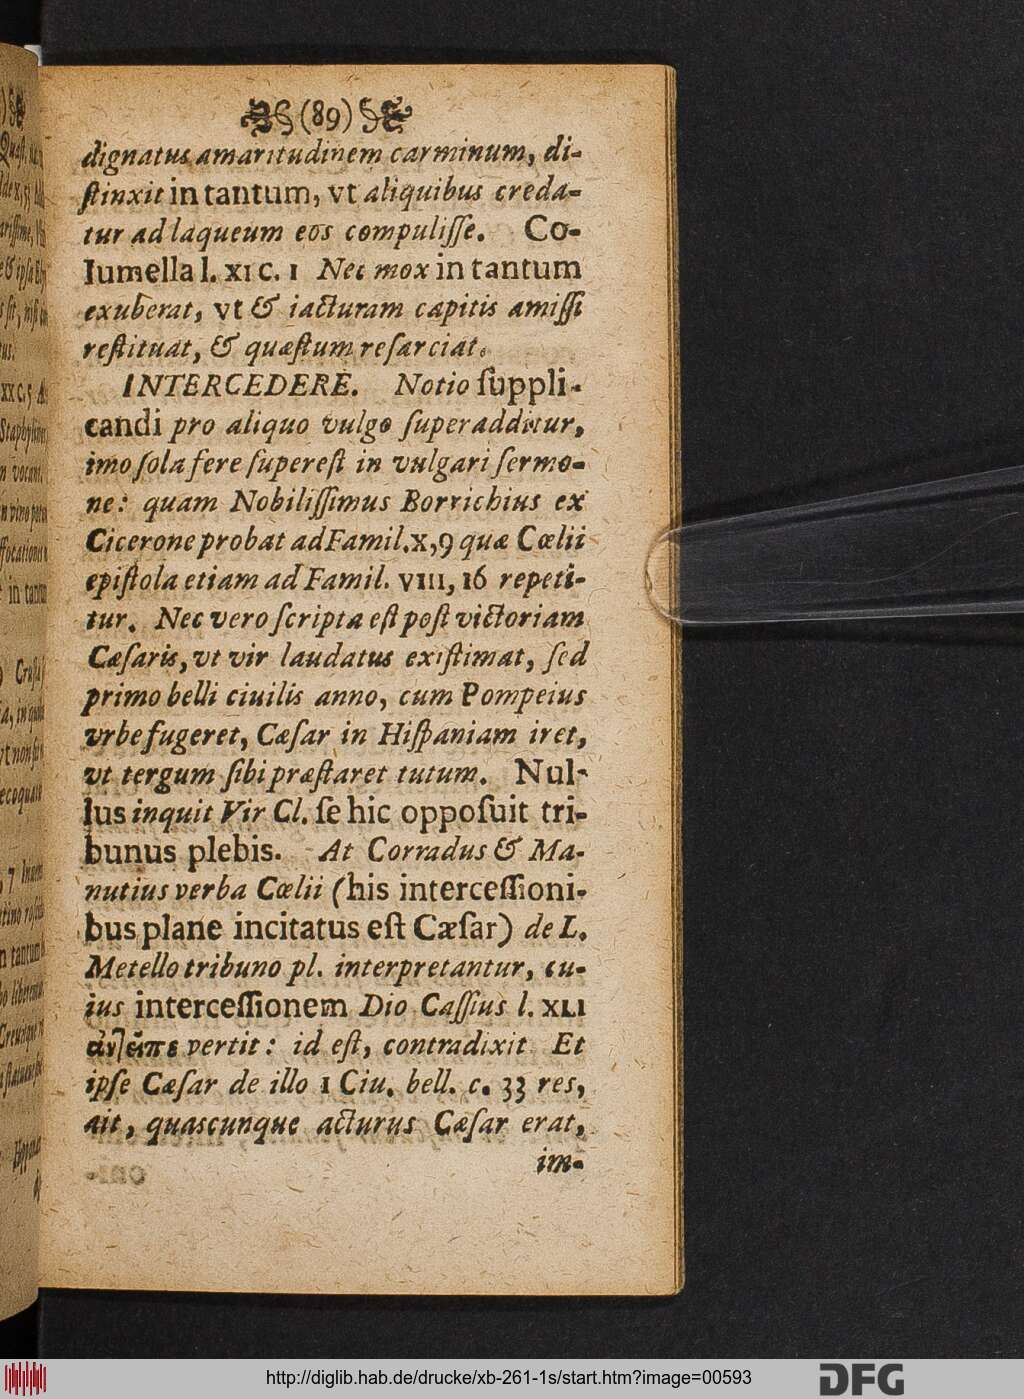 (89)
dignatus amaritudinem carminum, di-
ſtinxit in tantum, vt aliquibus creda-
tur ad laqueum eos compuliſſe. Co-
lumella l. XI C. I Nec mox in tantum
exuberat, vt & iacturam capitis amiſſi
reſtituat, & quæſtum reſarciat.
INTERCEDERE. Notio ſuppli-
candi pro aliquo vulgo ſuperadditur,
imo ſola fere ſupereſt in vulgari ſermo-
ne: quam Nobiliſſimus Borrichius ex
Cicerone probat ad Famil. X, 9 quæ Cœlii
epiſtola etiam ad Famil. VIII, 16 repeti-
tur. Nec vero ſcripta eſt poſt victoriam
Cæſaris, vt vir laudatus exiſtimat, ſed
primo belli ciuilis anno, cum Pompeius
vrbe fugeret, Cæſar in Hiſpaniam iret,
vt tergum ſibi præſtaret tutum. Nul-
lus inquit Vir Cl. ſe hic oppoſuit tri-
bunus plebis. At Corradus & Ma-
nutius verba Cœlii (his interceſſioni-
bus plane incitatus eſt Cæſar) de L.
Metello tribuno pl. interpretantur, cu-
ius interceſſionem Dio Caſſius l. XLI
ἀντεῖπε vertit: id eſt, contradixit Et
ipſe Cæſar de illo 1 Ciu. bell. c. 33 res,
ait, quascunque acturus Cæſar erat,
im-
http://diglib.hab.de/drucke/xb-261-1s/start.htm?image=00593
DFG